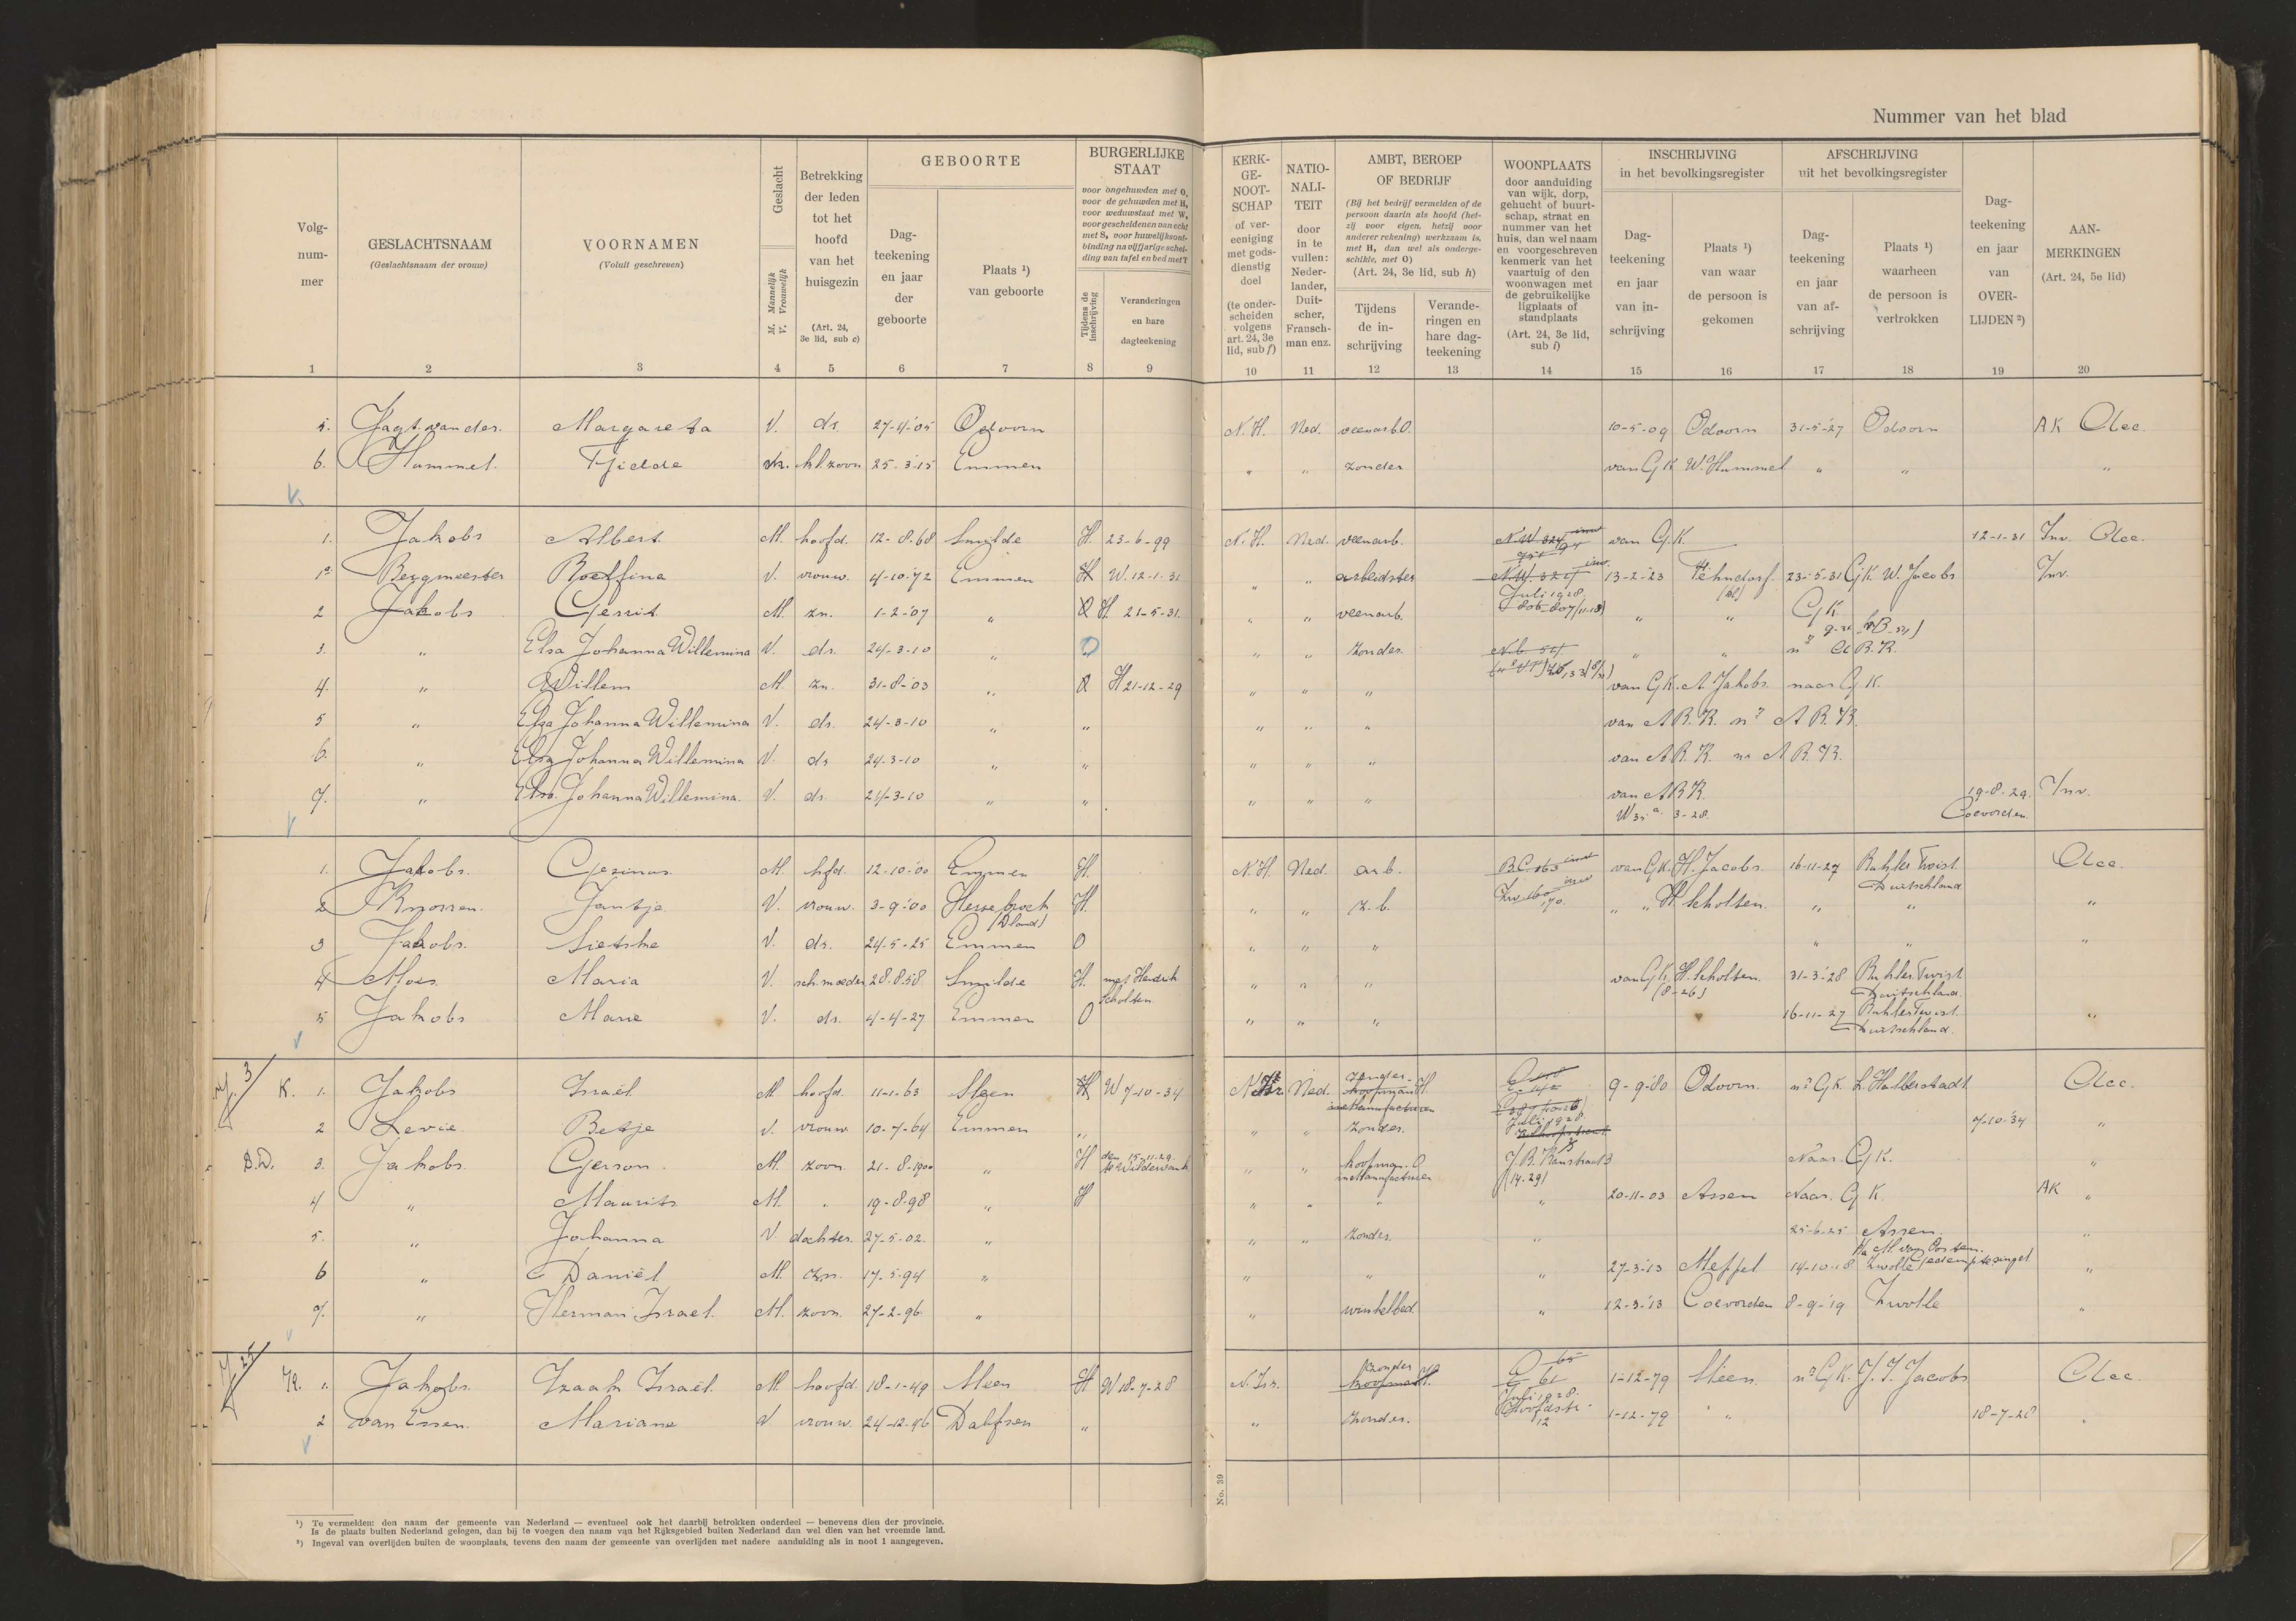 Nummer van het blad
Volg-
num-
mer
1
GESLACHTSNAAM
(Geslachtsnaam der vrouw)
2
VOORNAMEN
(Voluit geschreven)
3
Geslacht
M. Mannelijk
V. Vrouwelijk
4
Betrekking
der leden
tot het
hoofd
van het
huisgezin
(Art. 24,
3e lid, sub c)
5
GEBOORTE
Dag-
teekening
en jaar
der
geboorte
6
Plaats ¹)
van geboorte
7
BURGERLIJKE
STAAT
voor ongehuwden met O,
voor de gehuwden met H,
voor weduwstaat met W,
voor gescheidenen van echt
met S, voor huwelijksont-
binding na vijfjarige schei-
ding van tafel en bed met T
Tijdens de
inschrijving
8
Veranderingen
en hare
dagteekening
9
KERK-
GE-
NOOT-
SCHAP
of ver-
eeniging
met gods-
dienstig
doel
(te onder-
scheiden
volgens
art. 24, 3e
lid, sub f)
10
NATIO-
NALI-
TEIT
door
in te
vullen:
Neder-
lander,
Duit-
scher,
Fransch-
man enz.
11
AMBT, BEROEP
OF BEDRIJF
(Bij het bedrijf vermelden of de
persoon daarin als hoofd (het-
zij voor eigen, hetzij voor
anderer rekening) werkzaam is,
met H, dan wel als onderge-
schikte, met O)
(Art. 24, 3e lid, sub h)
Tijdens
de in-
schrijving
12
Verande-
ringen en
hare dag-
teekening
13
WOONPLAATS
door aanduiding
van wijk, dorp,
gehucht of buurt-
schap, straat en
nummer van het
huis, dan wel naam
en voorgeschreven
kenmerk van het
vaartuig of den
woonwagen met
de gebruikelijke
ligplaats of
standplaats
(Art. 24, 3e lid,
sub i)
14
INSCHRIJVING
in het bevolkingsregister
Dag-
teekening
en jaar
van in-
schrijving
15
Plaats ¹)
van waar
de persoon is
gekomen
16
AFSCHRIJVING
uit het bevolkingsregister
Dag-
teekening
en jaar
van af-
schrijving
17
Plaats ¹)
waarheen
de persoon is
vertrokken
18
Dag-
teekening
en jaar
van
OVER-
LIJDEN ²)
19
AAN-
MERKINGEN
(Art. 24, 5e lid)
20
5. Jagt van der. Margareta V. dr. 27-4-'05 Odoorn N.H. Ned. veenarb. O. 10-5-09 Odoorn 31-5-'27 Odoorn AK Acc.
6. Hummel. Tjidde zoon 25-3-'15 Emmen " " zonder van GK W. Hummel " " "
1. Jakobs Albert M. hoofd. 12-8-68 Smilde H. 23-6-99 N.H. Ned. veenarb. N.W. 324 van G.K. 12-1-31 Inv. Acc.
1a Bergmeester Roelfina V. vrouw. 4-10-'72 Emmen H W. 12-1-31 " " arbeidster N.W. 324 13-2-'23 Fehndorf 23-5-31 GK W. Jacobs Inv.
2 Jakobs Gerrit M. zn. 1-2-'07 " O H 21-5-31. " " veenarb. Juli 1928 " " G.K.
3. " Elsa Johanna Willemina V. dr. 24-3-10 " O " " zonder. " " A B.R.
4. " Willem M. zn. 31-8-'03 " O H 21-12-29 " " " van GK. A Jakobs. naar G K.
5 " Elsa Johanna Willemina V. dr. 24-3-10 " " " " " van A B.R. nr A B.R.
6. " Elsa Johanna Willemina V. dr 24-3-10 " " " " " van A B.R. nr A B.R.
7. " Elsa Johanna Willemina. V. dr. 24-3-10 " " " " " van A B R. 19-8-29. Inv.
3-28. Coevorden.
1. Jakobs. Gezinus. M. hfd. 12-10-'00 Emmen H. N.H. Ned. arb. B.C. 163 van GK. H. Jacobs. 16-11-27 Ruhler Twist Acc.
Duitschland
2 Knorren. Jantje V. vrouw. 3-9-'00 Hessebroek H. " " z.b. 170. " " H Scholten. " " "
(Dland)
3 Jakobs. Sietske V. dr. 24-5-25 Emmen O " " " " " "
4 Moes Maria V. sch. moeder 28-8-58 Smilde H. met Hendrik " " " van G.K. H. Scholten. 31-3-'28 Ruhler Twist
Scholten (8-26) Duitschland.
5 Jakobs Marie V. dr. 4-4-27 Emmen O " " " 16-11-27 Ruhler Twist "
Duitschland.
K. 1. Jakobs Israël M hoofd. 11-1-63 Sleen H W 7-10-34 Ned. zonder. koopman H. 9-9-'80 Odoorn. nr GK. L. Halberstadt Acc.
in Manufacturen
2 Levie. Betje V. vrouw 10-7-64 Emmen " " " zonder. Juli 1928 7-10-'34 "
3. Jakobs. Gerson. M. zoon. 21-8-1900 " H den 15-11-29 te Wildervank " " koopman O J.B. Kanstraat 3 Naar G K. "
in Manufacturen (14-29)
4 " Maurits M. " 19-8-98 " H " " " " 20-11-03 Assen Naar. G K. AK "
5. " Johanna V dochter. 27-5-02. " " " zonder. " 25-6-25 Assen. "
6 " Daniël M. zn. 17-5-94 " " " " 27-3-'13 Meppel 14-10-18 Zwolle "
7. " Herman Israel. M. zoon. 27-2-96 " " winkelbed. " 12-3-'13 Coevorden 8-9-'19 Zwolle "
1. Jakobs. Izaak Israël. M. hoofd. 18-1-49 Sleen H W 18-7-28 N. Isr. zonder koopman 1-12-79 Sleen. nr GK. J. I. Jacobs Acc.
Juli 1928.
2 van Essen. Mariane V vrouw. 24-12-46 Dalfsen " " zonder. Hoofdstr. 12 1-12-79 " 18-7-28 "
No. 39
¹) Te vermelden: den naam der gemeente van Nederland — eventueel ook het daarbij betrokken onderdeel — benevens dien der provincie.
Is de plaats buiten Nederland gelegen, dan bij te voegen den naam van het Rijksgebied buiten Nederland dan wel dien van het vreemde land.
²) Ingeval van overlijden buiten de woonplaats, tevens den naam der gemeente van overlijden met nadere aanduiding als in noot 1 aangegeven.